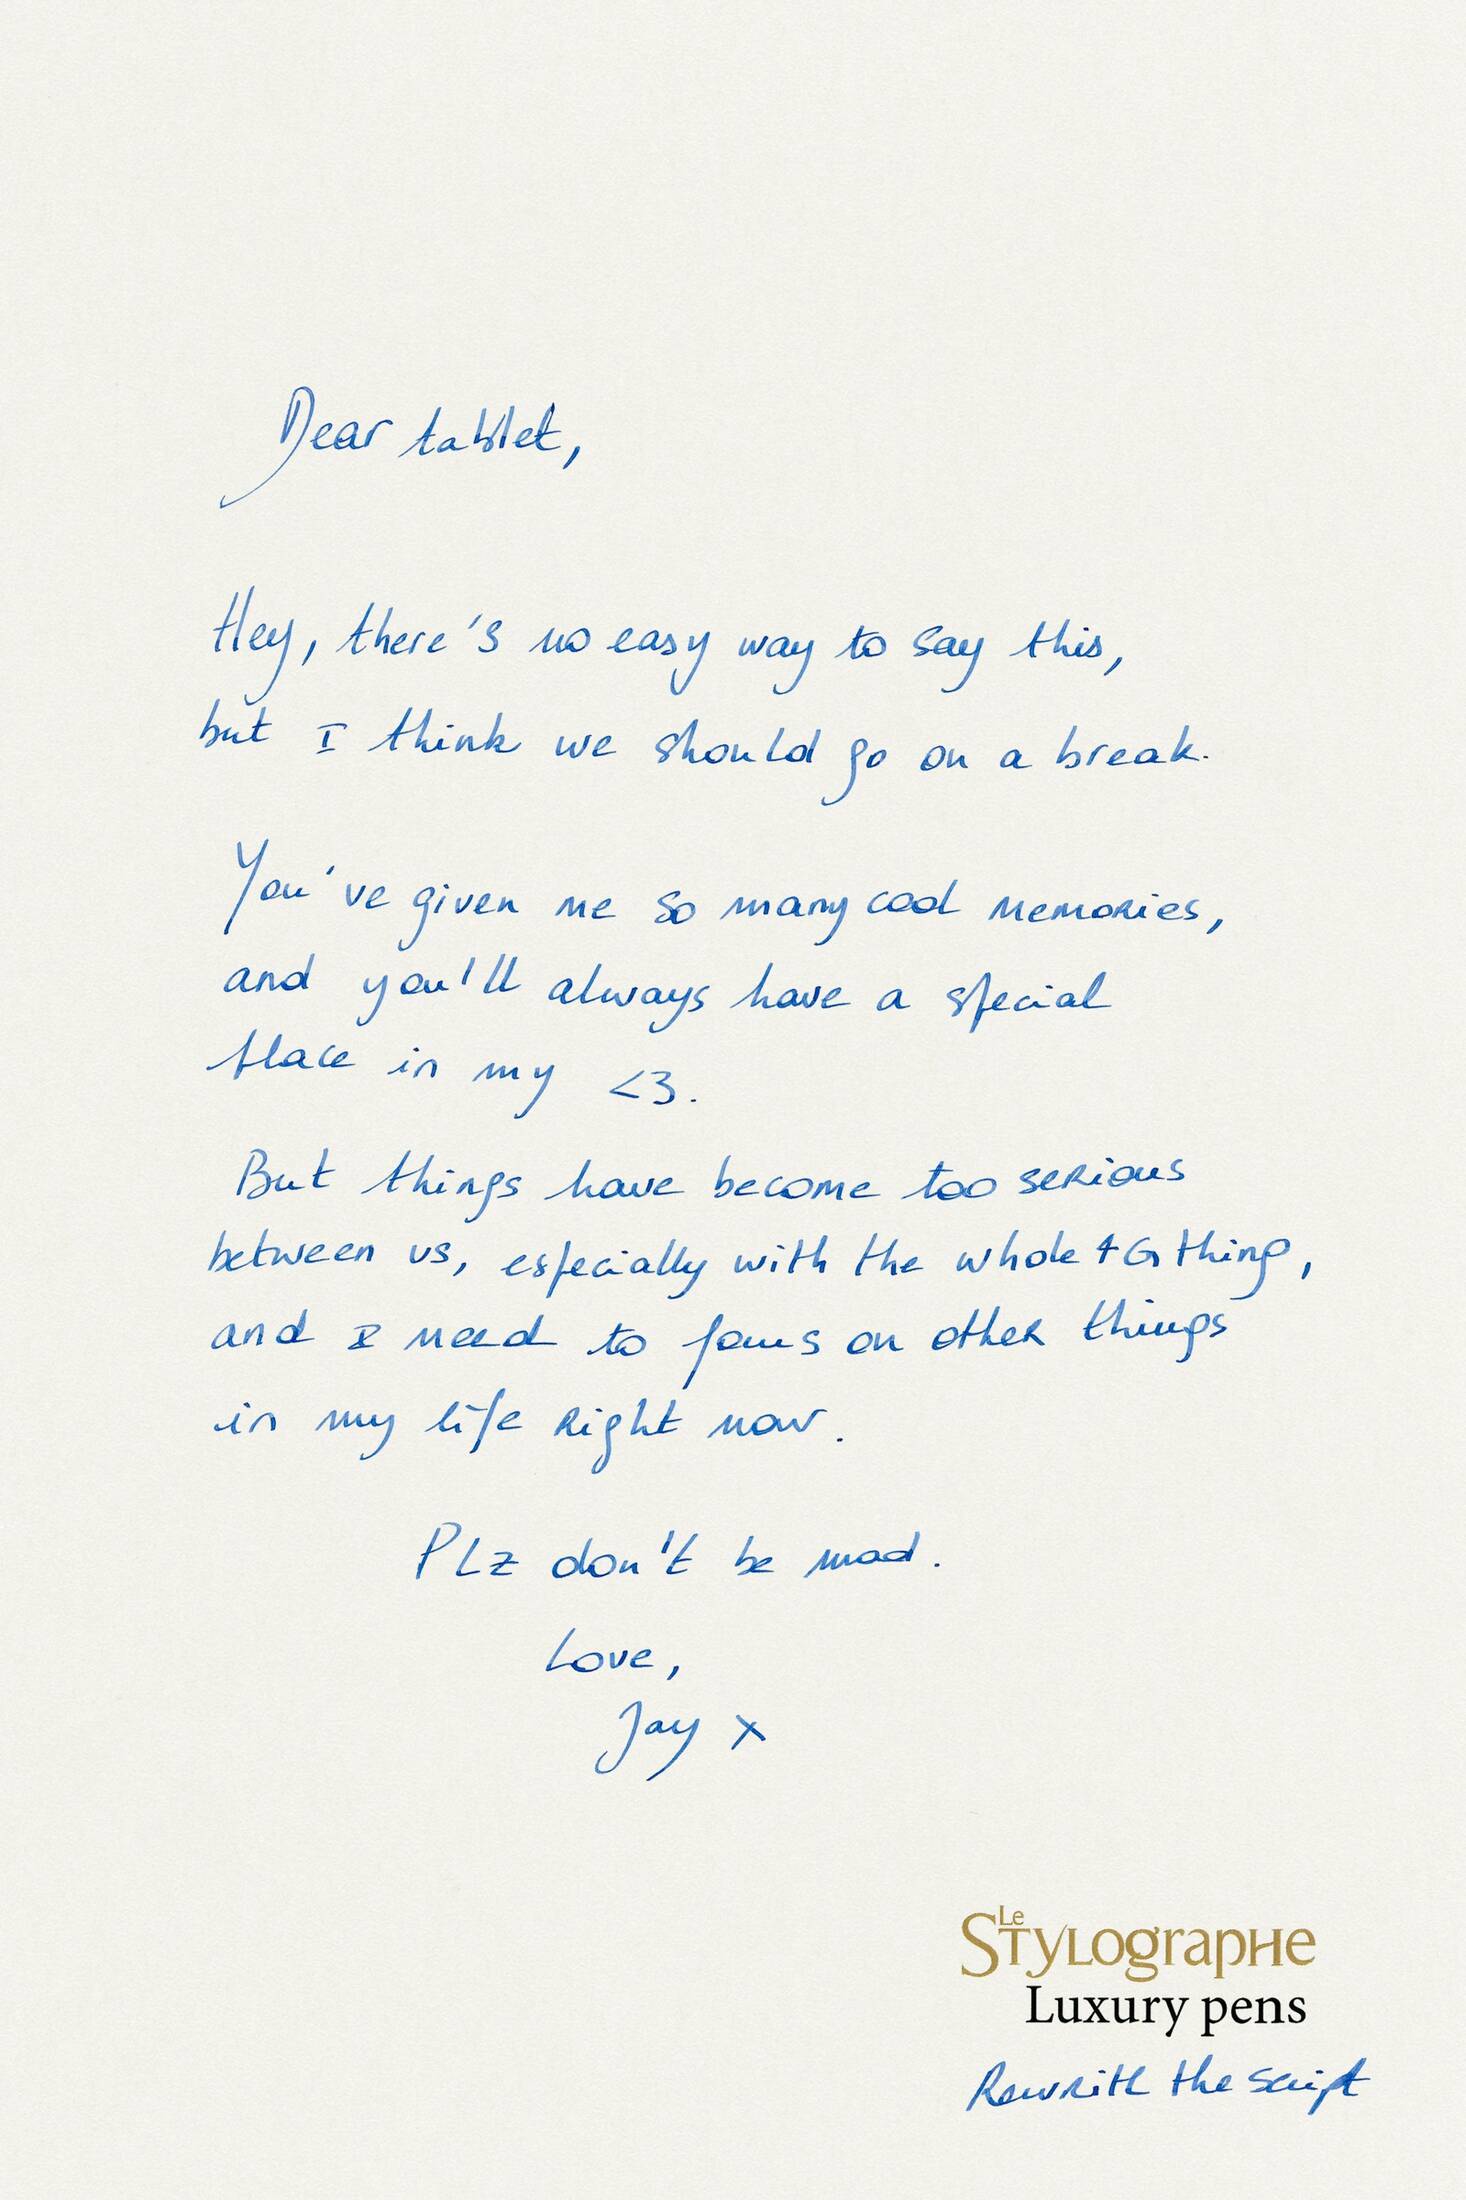 Dear tablet,
Hey, there's no easy way to say this,
but I think we should go on a break.
You've given me so many cool memories,
and you'll always have a special
place in my <3.
But things have become too serious
between us, especially with the whole 4G thing,
and I need to focus on other things
in my life right now.
PLz don't be mad.
Love,
Jay x
Le Stylographe
Luxury pens
Rewrite the script